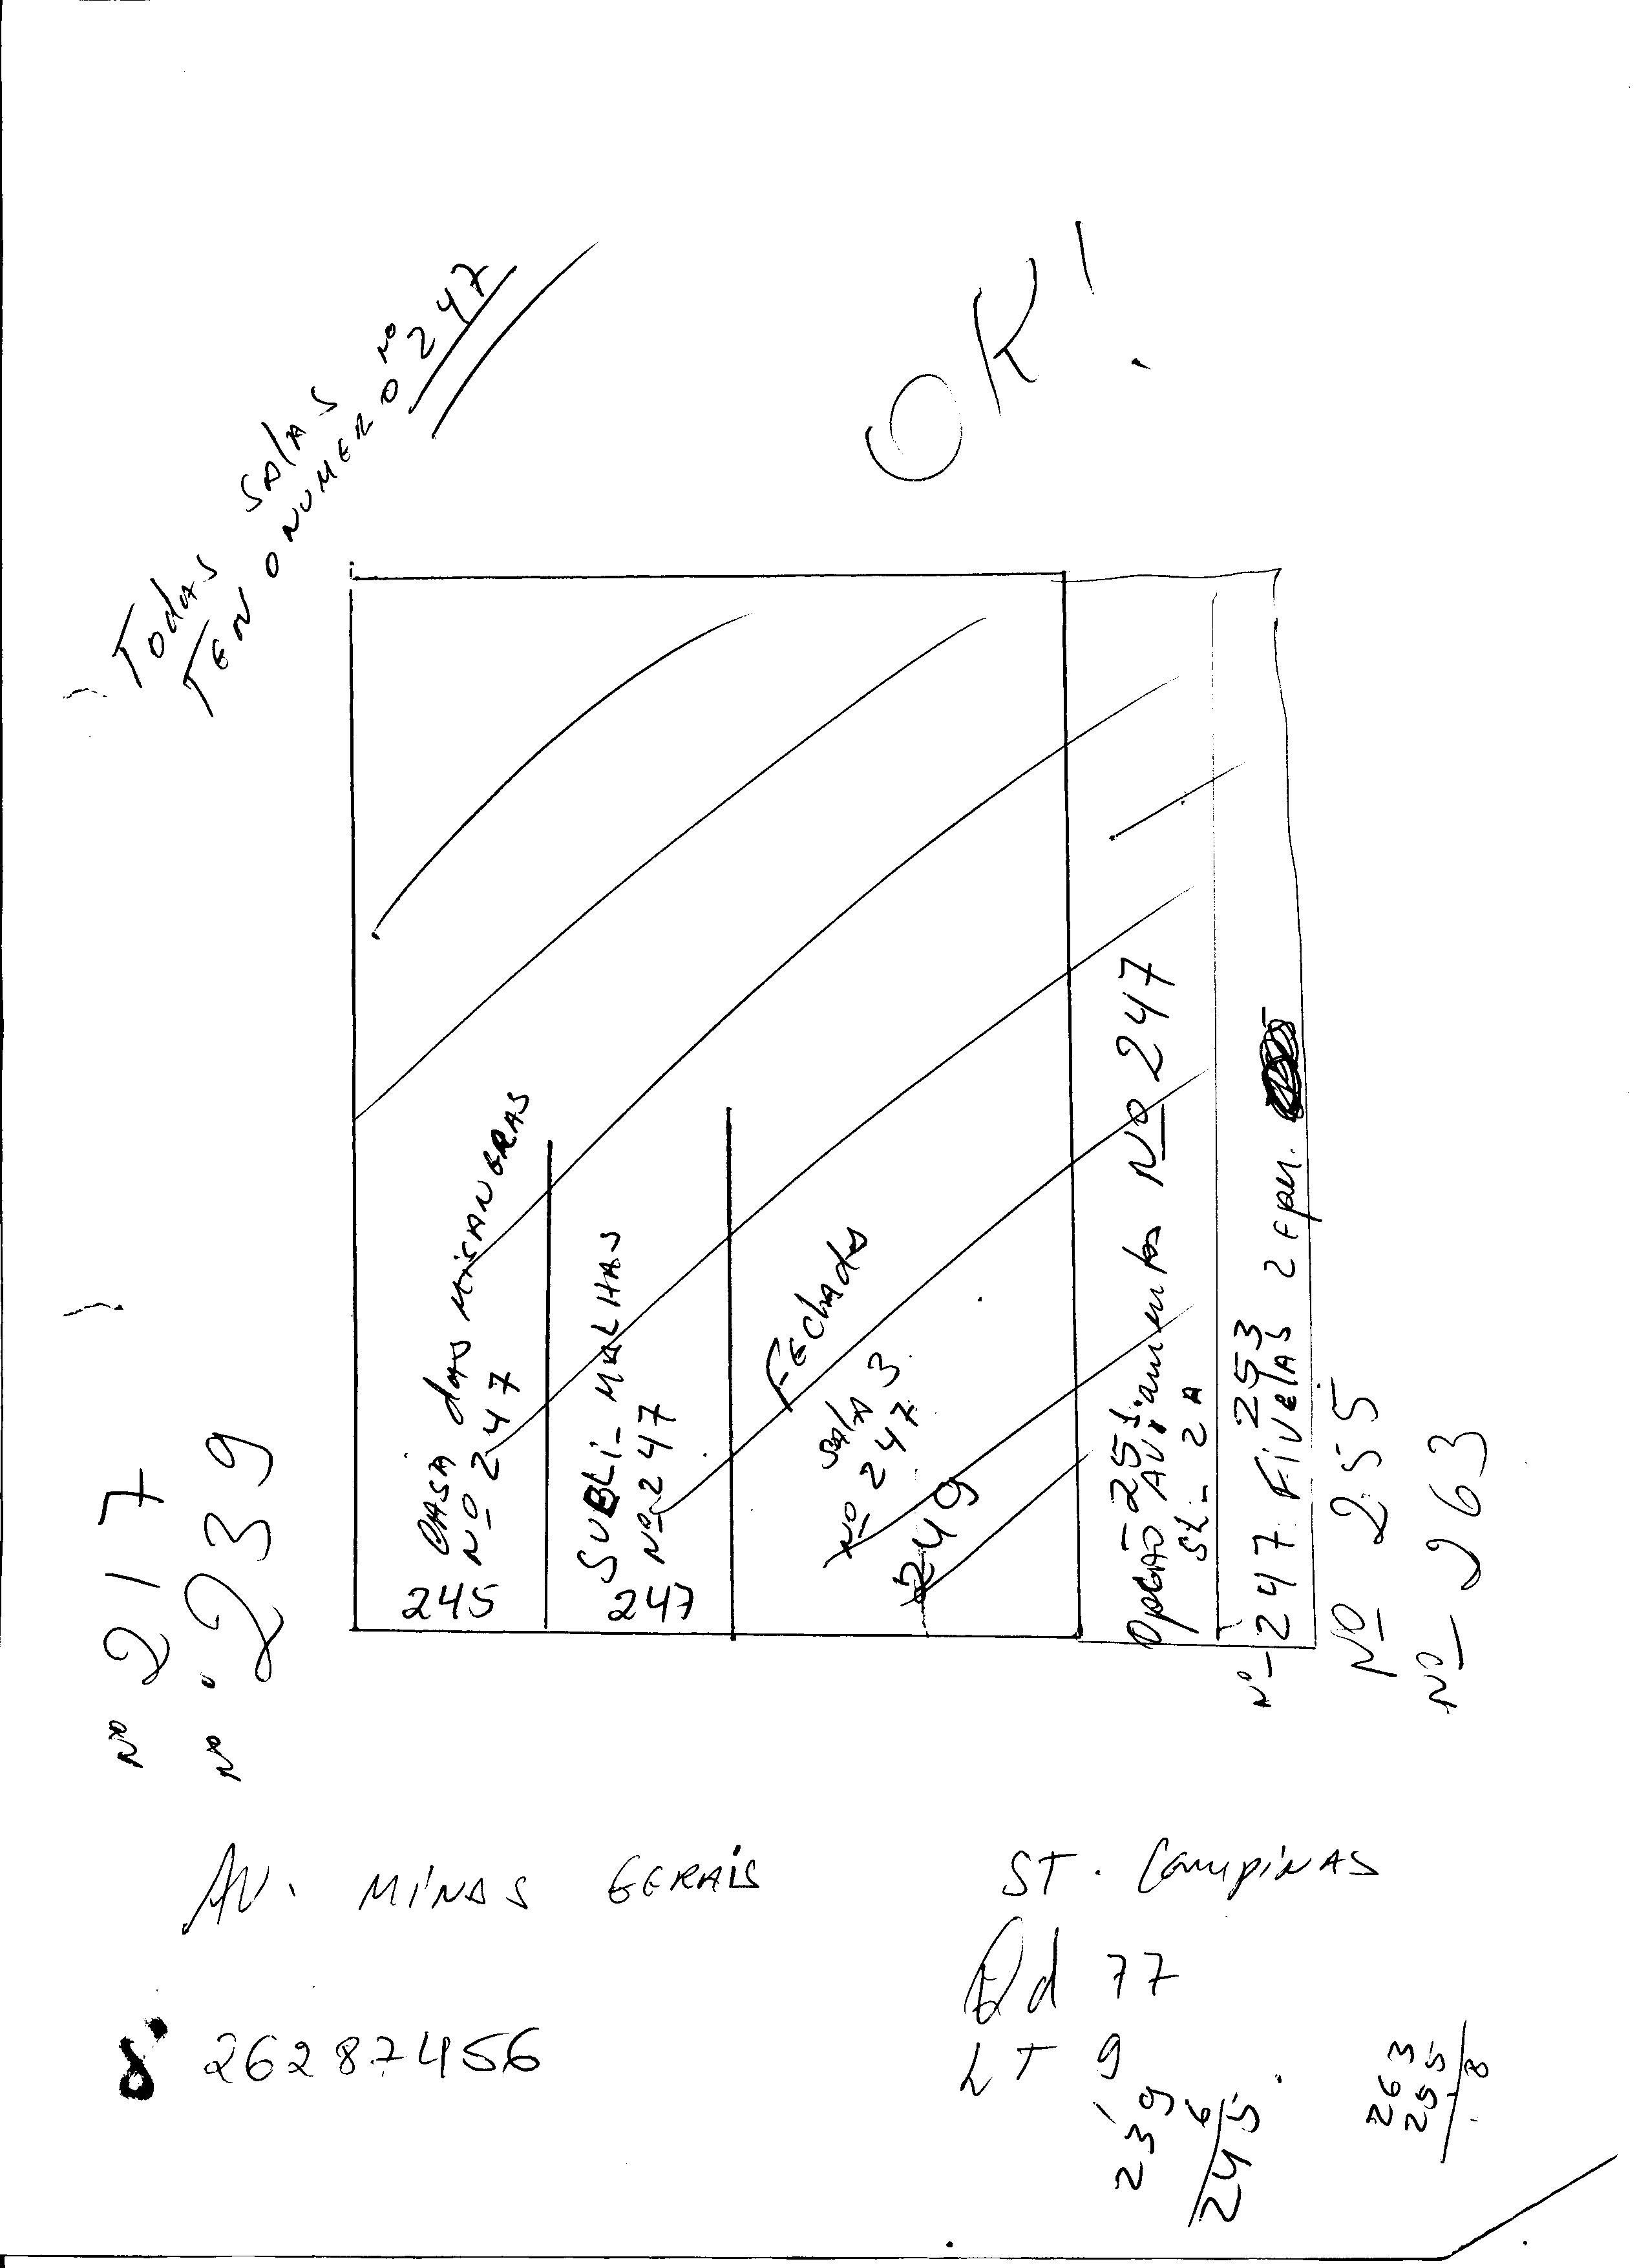 Todas Salas
TEN O NUMERO Nº 247
OK!
Nº 217
Nº 239
CASA das MiSANGRAS
Nº 247
245
SUBLi-MALHAS
Nº 247
247
FEchados
SalA 3
Nº 247
249
251
OpçÃO AViamentos Nº 247
SL- 2 A
253
Nº 247 FivelAS
Nº 255
Nº 263
AV. MiNAS GERAiS
ST. CAmpiNAS
Qd 77
LT 9
262 87456
239
6
245
263
255
8